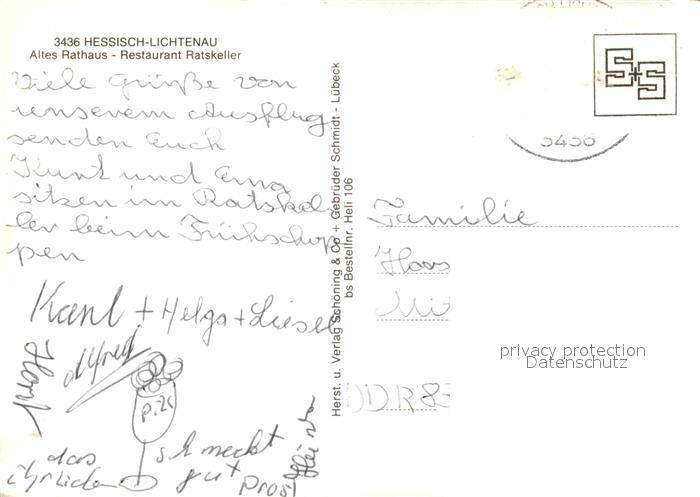 3436 HESSISCH-LICHTENAU
Altes Rathaus - Restaurant Ratskeller
Viele Grüße von
unserem Ausflug
senden Euch
Kurt und Erna
sitzen im Ratskel-
ler beim Frühschop
pen
Karl + Helga + Liesel
Horst
Alfred
das
schmeckt
gut
Prost
Herst. u. Verlag Schöning & Co + Gebrüder Schmidt - Lübeck
bs Bestellnr. Heli 106
S+S
3436
Familie
Haas
Mit
DDR 83
privacy protection
Datenschutz